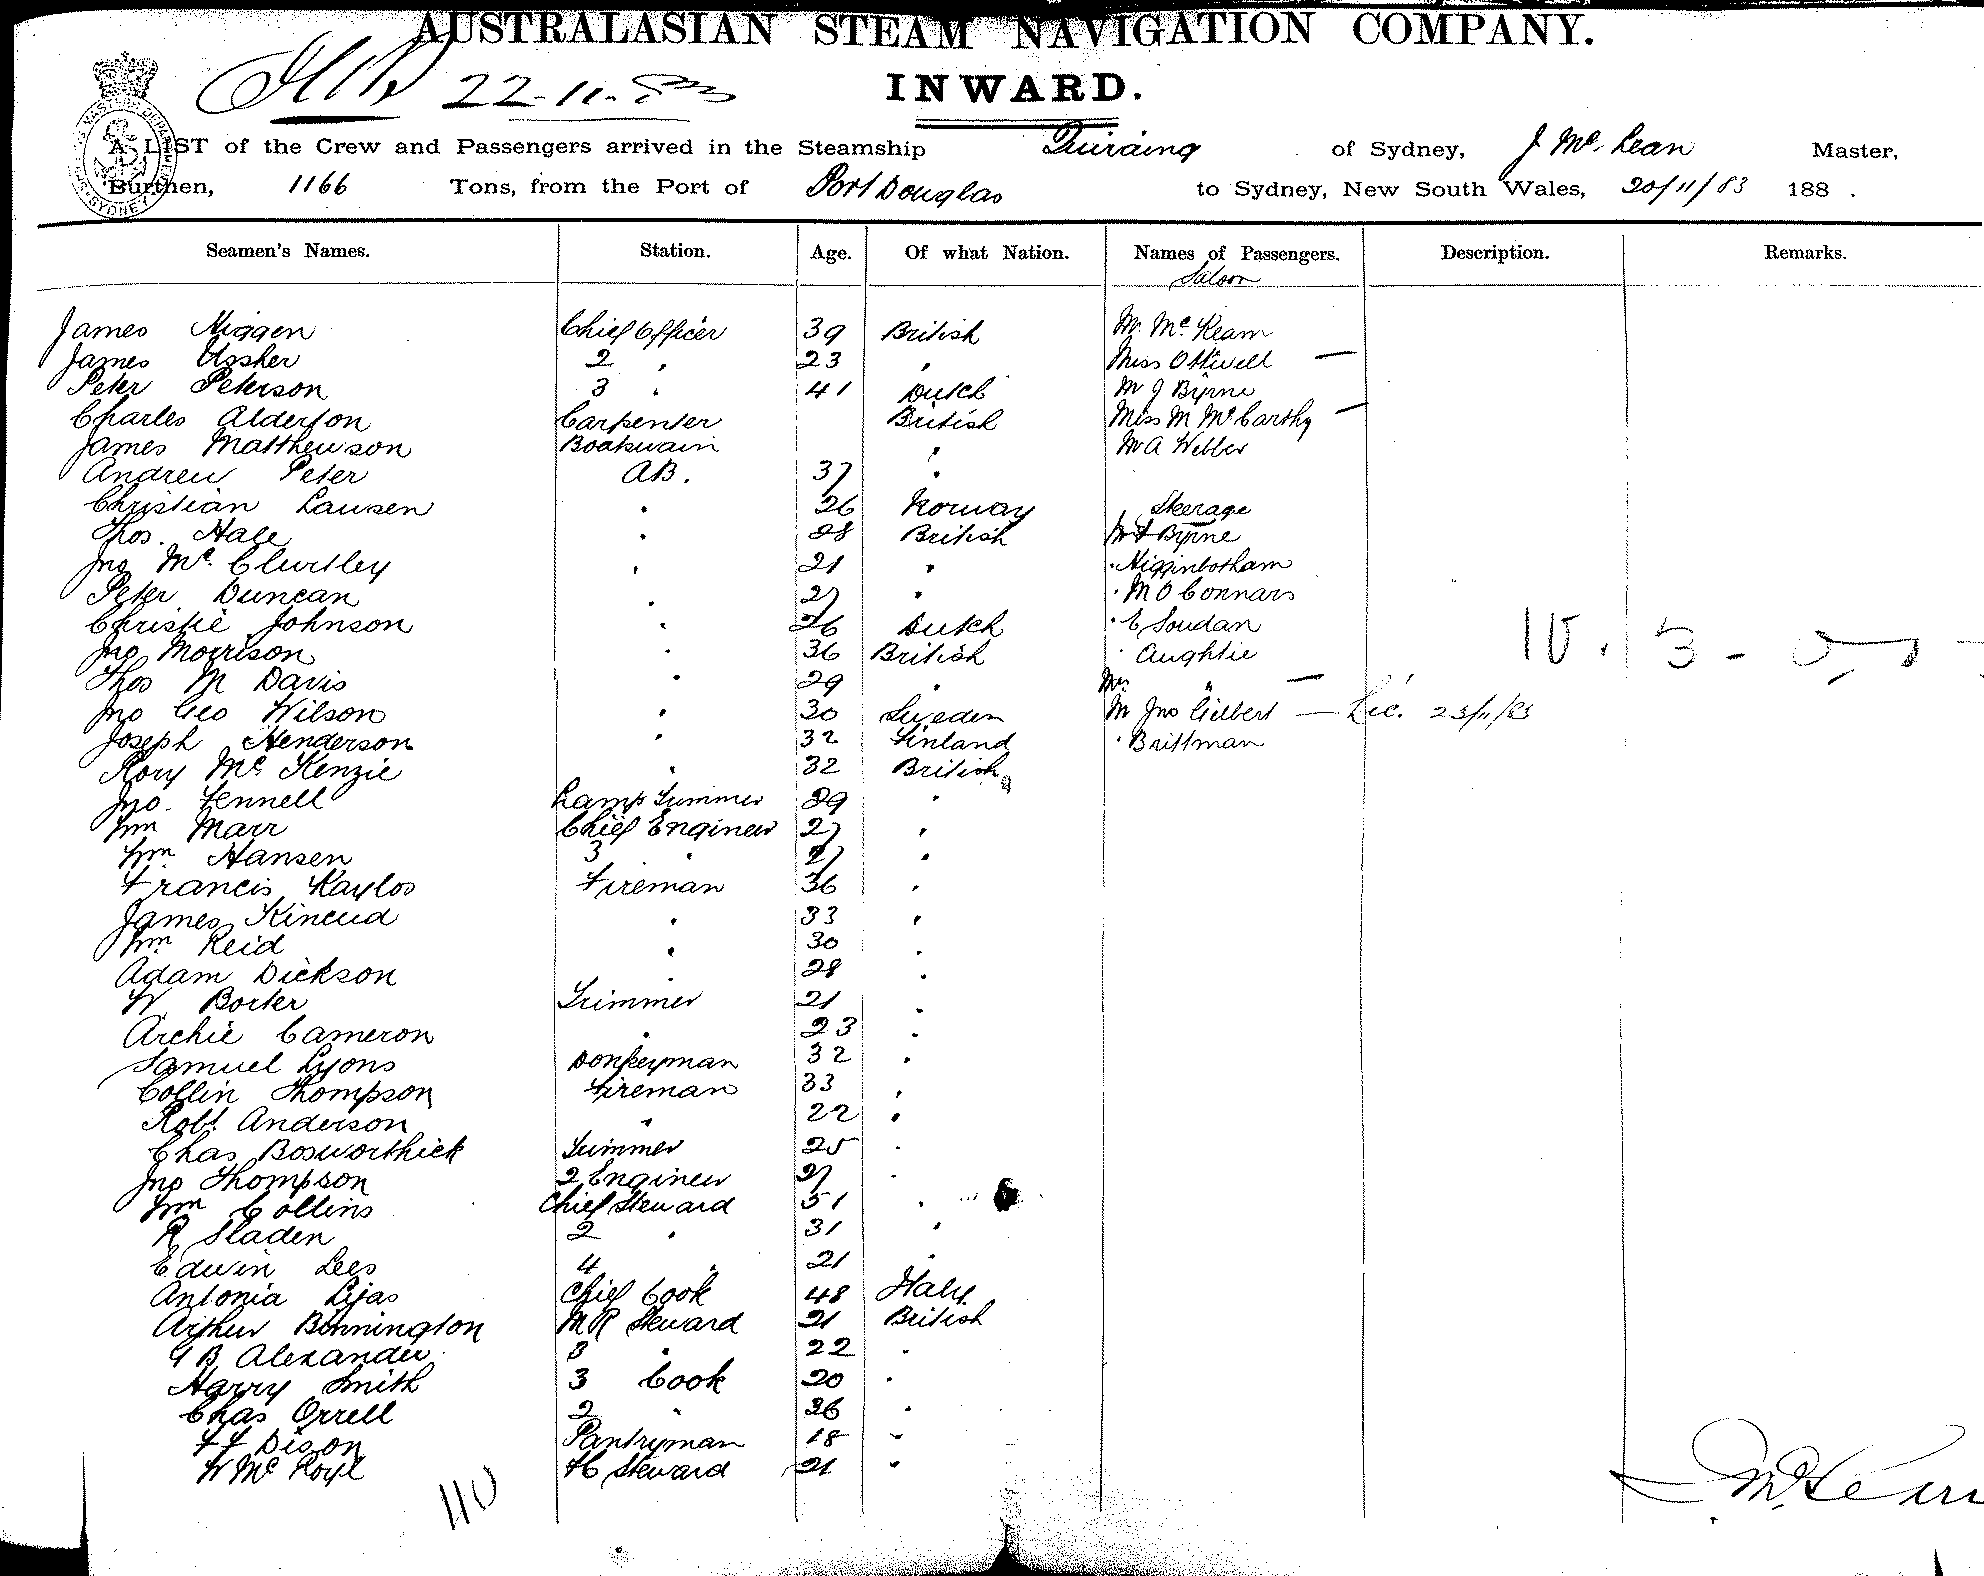 AUSTRALASIAN STEAM NAVIGATION COMPANY.
22-11-83
INWARD.
A LIST of the Crew and Passengers arrived in the Steamship Quiraing of Sydney, J Mc. Lean Master,
Burthen, 1166 Tons, from the Port of Port Douglas to Sydney, New South Wales, 20/11/83 188 .
Seamen's Names. Station. Age. Of what Nation. Names of Passengers. Description. Remarks.
Saloon
James Niggen Chief Officer 39 British Mr. Mc. Keam
James Ussher 2 " 23 " Miss Ottwell —
Peter Peterson 3 " 41 Dutch Mr J Byrne
Charles Alderton Carpenter British Miss M McCarthy —
James Matthewson Boatswain " Mr A Webber
Andrew Peter AB. 37 "
Christian Lausen " 26 Norway Steerage
Thos. Hale " 28 British Byrne
Jno Mc. Clurtley " 21 " " Higginbotham
Peter Duncan " 27 " " M O Connars
Christie Johnson " 26 Dutch " C Soudan
Jno Morrison " 36 British " Aughtie
Thos M Davis " 29 " Mrs " —
Jno Geo Wilson " 30 Sweden Mr Jno Gilbert — Lic. 23/11/83
Joseph Henderson " 32 Finland " Brittman
Rory Mc. Kenzie " 32 British
Jno. Fennell Lamp Trimmer 29 "
Wm Marr Chief Engineer 27 "
Wm Hansen 3 " 27 "
Francis Kaylos Fireman 36 "
James Kincud " 33 "
Wm Reid " 30 "
Adam Dickson " 28 "
W Borter Trimmer 21 "
Archie Cameron " 23 "
Samuel Lyons Donkeyman 32 "
Collin Thompson Fireman 33 "
Robt Anderson " 22 "
Chas Bosworthick Trimmer 25 "
Jno Thompson 2 Engineer 27 "
Wm Collins Chief Steward 51 "
R Sladen 2 " 31 "
Edwin Lees 4 " 21 "
Antonia Lijas Chief Cook 48 Italy
Arthur Binnington MR Steward 21 British
G B Alexander 3 " 22 "
Harry Smith 3 Cook 20 "
Chas Orrell 2 " 26 "
F F Dison Pantryman 18 "
W Mc Royl FC Steward 21 "
110
J McLean